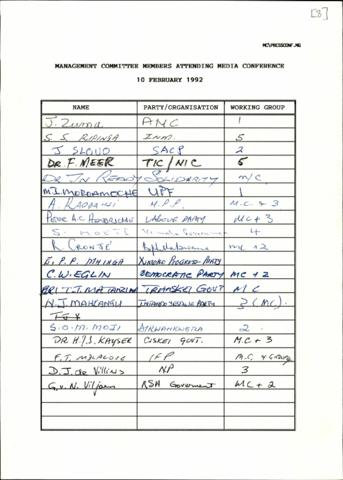 [8]
MC\PRESSCONF.MG
MANAGEMENT COMMITTEE MEMBERS ATTENDING MEDIA CONFERENCE
10 FEBRUARY 1992
NAME PARTY/ORGANISATION WORKING GROUP
J. Zuma ANC 1
S. S. RIPINGA INM. 5
J SLOVO SACP 2
DR F. MEER TIC/NIC 5
DR JN REDDY SOLIDARITY M/C
UPF 1
A. RAJBANSI N.P.P. M.C. & 3
PETER A.C. HENDRICKSE LABOUR PARTY MC + 3
S. 4
R. CRONJÉ Bophuthatswana MC + 2
E. P. P. MHINGA XIMOKO PROGRESS PARTY
C.W. EGLIN DEMOCRATIC PARTY MC + 2
T.J. MATANZIMA TRANSKEI GOVT M/C
N.J. MAHLANGU 3 (MC).
S.O.M. MOJI DIKWANKWETLA 2
DR H.J.S. KAYSER CISKEI GOVT. M.C + 3
F.T. MDLALOSE IFP M.C. &
D. J. de Villiers NP 3
G. v. N. Viljoen RSA Government MC + 2